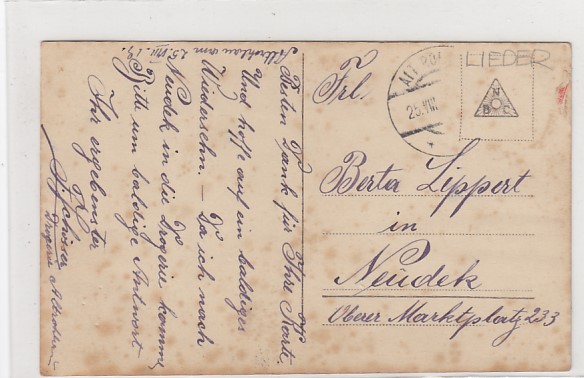 Altrohlau am 25. VIII. 19.
Besten Dank für Ihre Karte.
Und hoffe auf ein baldiges
Wiedersehn. – Da ich nach
Neudek in die Drogerie komme,
Bitte um baldige Antwort
Ihr ergebenster
Drogerie Altrohlau
LIEDER
ALT RO
25.VIII
N
B C
Frl.
Berta Lippert
in
Neudek
Oberer Marktplatz 233